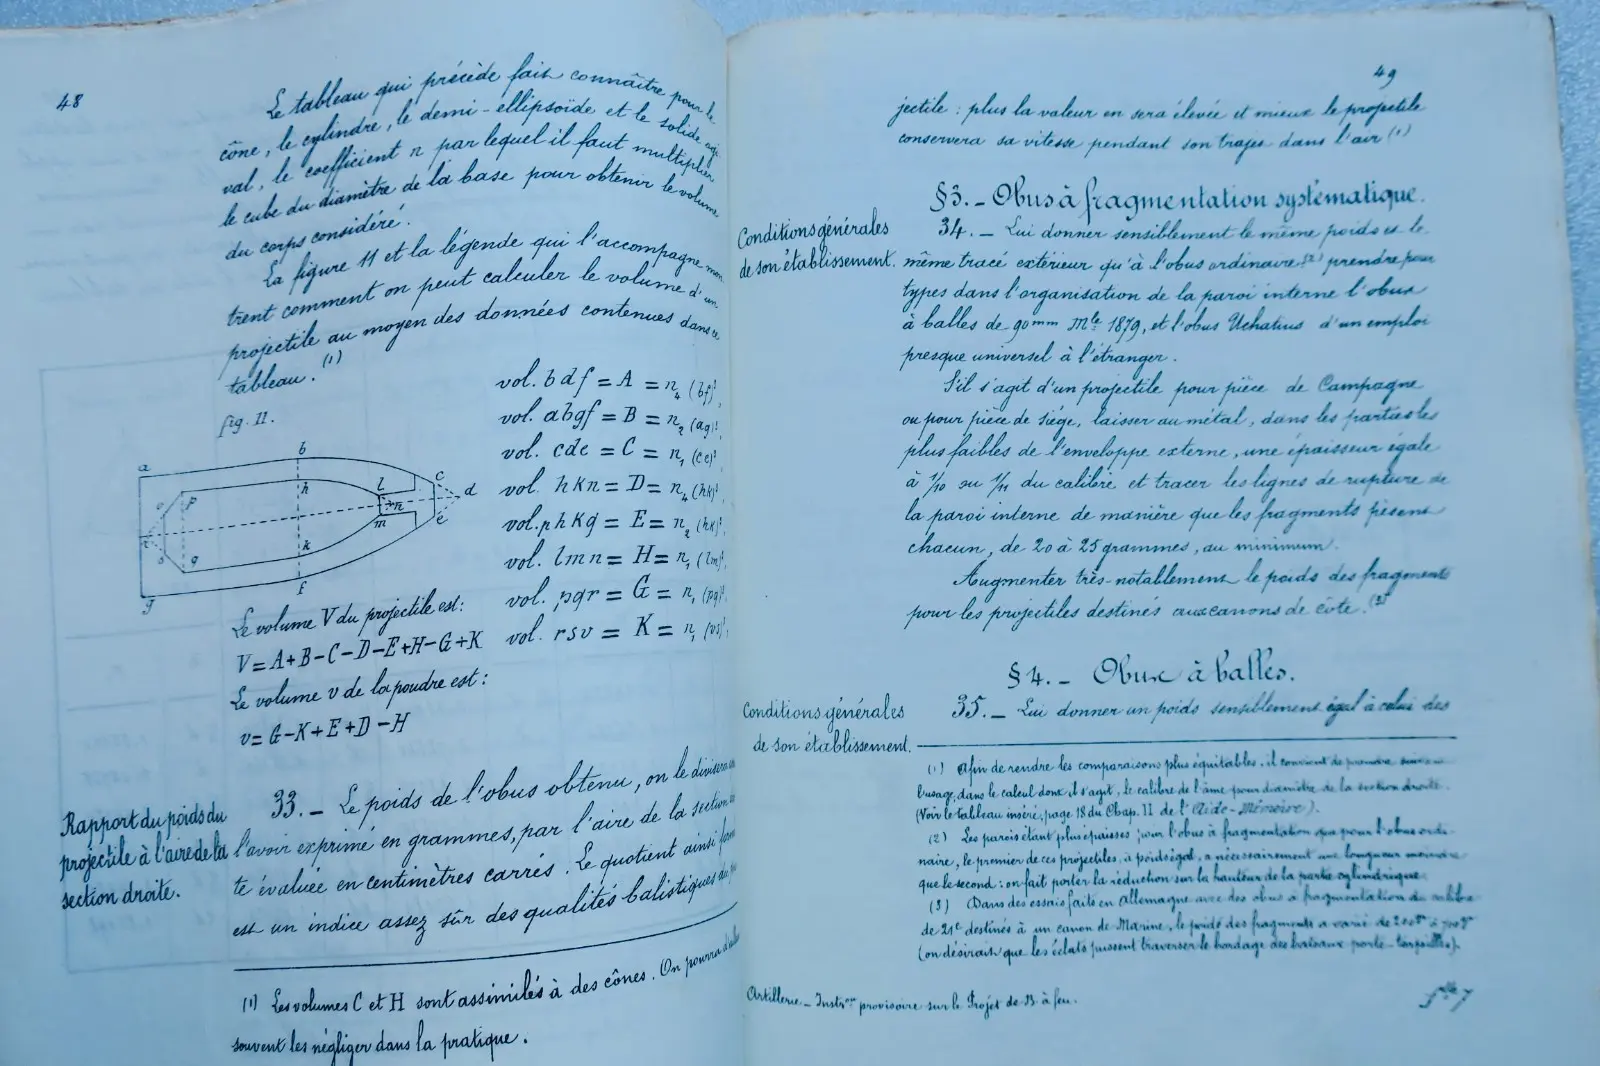 48
Le tableau qui précède fait connaître pour le
cône, le cylindre, le demi-ellipsoïde et le solide ogi-
val, le coefficient n par lequel il faut multiplier
le cube du diamètre de la base pour obtenir le volume
du corps considéré.
La figure 11 et la légende qui l'accompagne mon-
trent comment on peut calculer le volume d'un
projectile au moyen des données contenues dans ce
tableau. (1)
fig. 11.
a b c d e f g h k l m n o p q r s
vol. bdf = A = n4 (bf)³,
vol. abgf = B = n2 (ag)³,
vol. cde = C = n1 (ce)³,
vol. hkn = D = n4 (hk)³,
vol. phkq = E = n2 (hk)³,
vol. lmn = H = n1 (lm)³,
vol. pqr = G = n1 (pq)³,
vol. rsv = K = n1 (vs)³,
Le volume V du projectile est:
V=A+B-C-D-E+H-G+K
Le volume v de la poudre est:
v=G-K+E+D-H
Rapport du poids du
projectile à l'aire de la
section droite.
33. _ Le poids de l'obus obtenu, on le divisera
l'avoir exprimé en grammes, par l'aire de la section
te évaluée en centimètres carrés. Le quotient ainsi
est un indice assez sûr des qualités balistiques du
(1) Les volumes C et H sont assimilés à des cônes. On pourra
souvent les négliger dans la pratique.
49
jectile : plus la valeur en sera élevée et mieux le projectile
conservera sa vitesse pendant son trajet dans l'air (1)
§3. _ Obus à fragmentation systématique.
Conditions générales
de son établissement.
34. _ Lui donner sensiblement le même poids et le
même tracé extérieur qu'à l'obus ordinaire (2) prendre pour
types dans l'organisation de la paroi interne l'obus
à balles de 90mm Mle 1879, et l'obus Uchatius d'un emploi
presque universel à l'étranger.
S'il s'agit d'un projectile pour pièce de Campagne
ou pour pièce de siège, laisser au métal, dans les parties les
plus faibles de l'enveloppe externe, une épaisseur égale
à 1/10 ou 1/11 du calibre et tracer les lignes de rupture de
la paroi interne de manière que les fragments pèsent
chacun, de 20 à 25 grammes, au minimum.
Augmenter très-notablement le poids des fragments
pour les projectiles destinés aux canons de côte. (3)
§4. _ Obus à balles.
Conditions générales
de son établissement.
35. _ Lui donner un poids sensiblement égal à celui des
(1) Afin de rendre les comparaisons plus équitables, il convient de prendre, suivant
l'usage, dans le calcul dont il s'agit, le calibre de l'âme pour diamètre de la section droite.
(Voir le tableau inséré, page 18 du Chap. II de l'Aide-Mémoire).
(2) Les parois étant plus épaisses pour l'obus à fragmentation que pour l'obus ordi-
naire, le premier de ces projectiles, à poids égal, a nécessairement une longueur moindre
que le second : on fait porter la réduction sur la hauteur de la partie cylindrique.
(3) Dans des essais faits en Allemagne avec des obus à fragmentation de calibre
de 21c destinés à un canon de Marine, le poids des fragments a varié de
(on désirait que les éclats pussent traverser le bordage des bateaux porte-torpilles).
Artillerie _ Instron provisoire sur le Projet de B. à feu.
flle 7